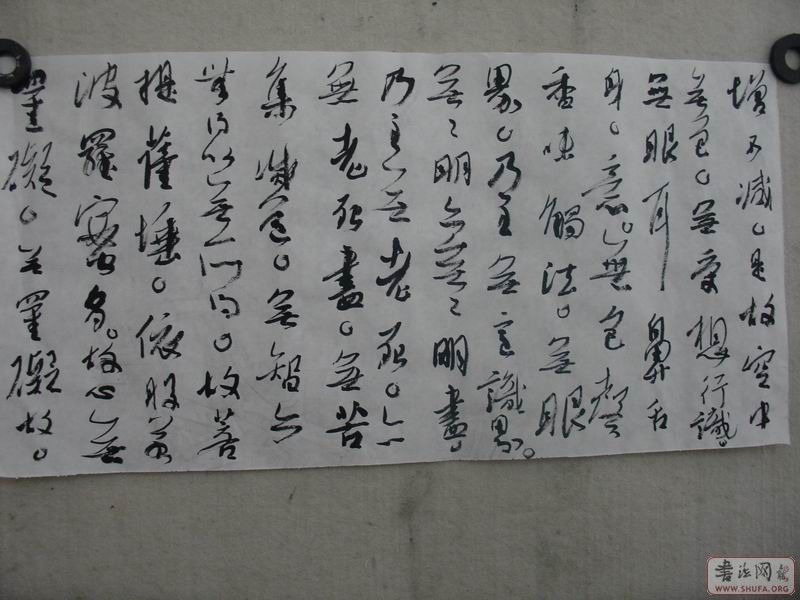 增不减。是故空中
無色。無受想行識。
無眼耳鼻舌
身。意。無色聲
香味觸法。無眼
界。乃至無意識界。
無無明亦無無明盡
乃至無老死。亦
無老死盡。無苦
集滅道。無智亦
無得以無所得。故菩
提薩埵。依般若
波羅蜜多。故心無
罣礙。無罣礙故。
书法网
WWW.SHUFA.ORG